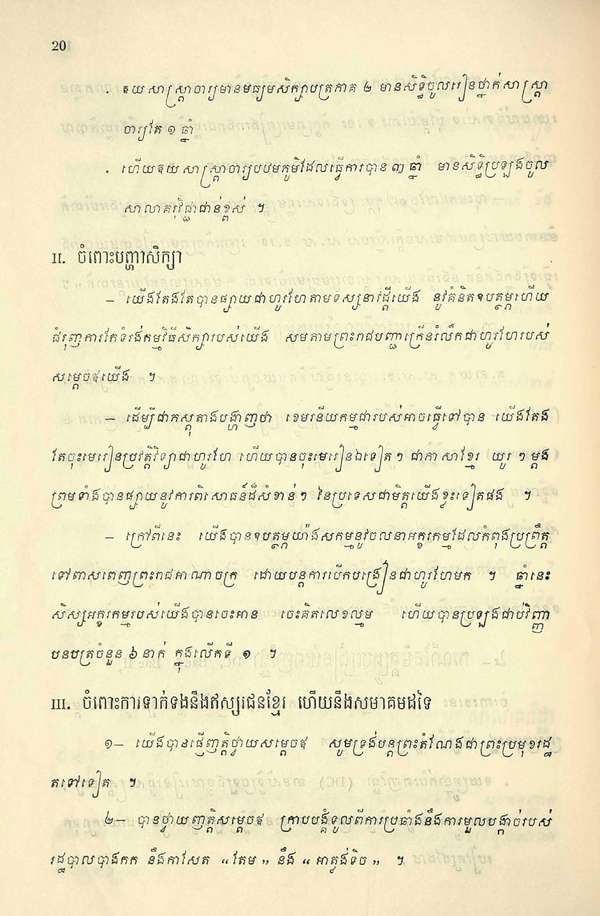 20
. ឧយសាស្ត្រាចារ្យមានមធ្យមសិក្សាបត្រភាគ ២ មានសិទ្ធិចូលរៀនថ្នាក់សាស្ត្រា
ចារ្យតែ ១ ឆ្នាំ
. ហើយឧយសាស្ត្រាចារ្យបឋមភូមិដែលធ្វើការបាន ៣ ឆ្នាំ មានសិទ្ធិប្រឡងចូល
សាលាគរុវិជ្ជាជាន់ខ្ពស់ ។
II. ចំពោះបញ្ហាសិក្សា
– យើងតែងតែបានផ្សាយជាហូរហែតាមទស្សនាវដ្ដីយើង នូវគំនិតឧបត្ថម្ភហើយ
ជំរុញការកែទំរង់កម្មវិធីសិក្សារបស់យើង សមតាមព្រះរាជបញ្ជាក្រើនរំលឹកជាហូរហែរបស់
សម្ដេចឪយើង ។
– ដើម្បីជាកស្តុតាងបង្ហាញថា ខេមរនីយកម្មជារបស់អាចធ្វើទៅបាន យើងតែង
តែចុះមេរៀនប្រវត្តិវិទ្យាជាហូរហែ ហើយបានចុះមេរៀនឯទៀតៗ ជាភាសាខ្មែរ យូរៗម្ដង
ព្រមទាំងបានផ្សាយនូវការពិសោធន៍ដ៏សំខាន់ៗ នៃប្រទេសជាមិត្តយើងខ្លះទៀតផង ។
– ក្រៅពីនេះ យើងបានឧបត្ថម្ភយ៉ាងសកម្មនូវចលនាអក្ខរកម្មដែលកំពុងប្រព្រឹត្ត
ទៅពាសពេញព្រះរាជអាណាចក្រ ដោយបន្តការបើកបង្រៀនជាហូរហែមក ។ ឆ្នាំនេះ
សិស្សអក្ខរកម្មរបស់យើងបានចេះអាន ចេះគិតលេខល្មម ហើយបានប្រឡងជាប់វិញ្ញា
បនបត្រចំនួន ៦ នាក់ ក្នុងលើកទី ១ ។
III. ចំពោះការទាក់ទងនឹងឥស្សរជនខ្មែរ ហើយនឹងសមាគមដទៃ
១– យើងបានផ្ញើញត្តិថ្វាយសម្ដេចឪ សូមទ្រង់បន្តព្រះតំណែងជាព្រះប្រមុខរដ្ឋ
តទៅទៀត ។
២– បានថ្វាយញត្តិសម្ដេចឪ ក្រាបបង្គំទូលពីការប្រឆាំងនឹងការមួលបង្កាច់របស់
រដ្ឋបាលបាងកក នឹងកាសែត «តែម» នឹង «អាត្លង់ទិច» ។